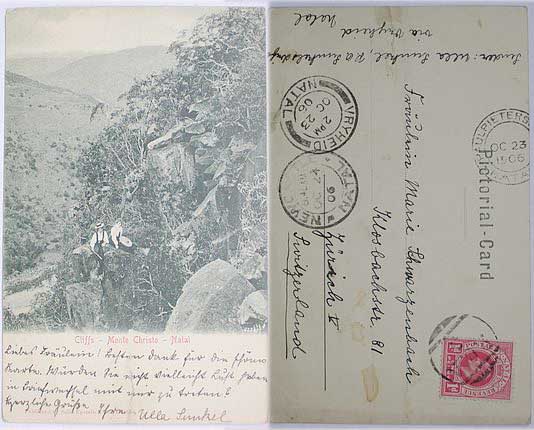 Cliffs - Monte Christo - Natal
Liebes Fräulein! Besten Dank für die schöne
Karte. Würden Sie nicht vielleicht Lust haben
in Briefwechsel mit mir zu treten?
Herzliche Grüße Ihre Ulla Sunkel
Sender: Ulla Sunkel, P.O. Lüneburg
via Vryheid
Natal
VRYHEID
2 PM
OC 23
06
NATAL
OC 23
1906
NATAL
06
Pictorial-Card
Fräulein Marie Schwarzenbach
Klosbachstr. 81
Zürich V
Switzerland
POSTAGE
1D
1D